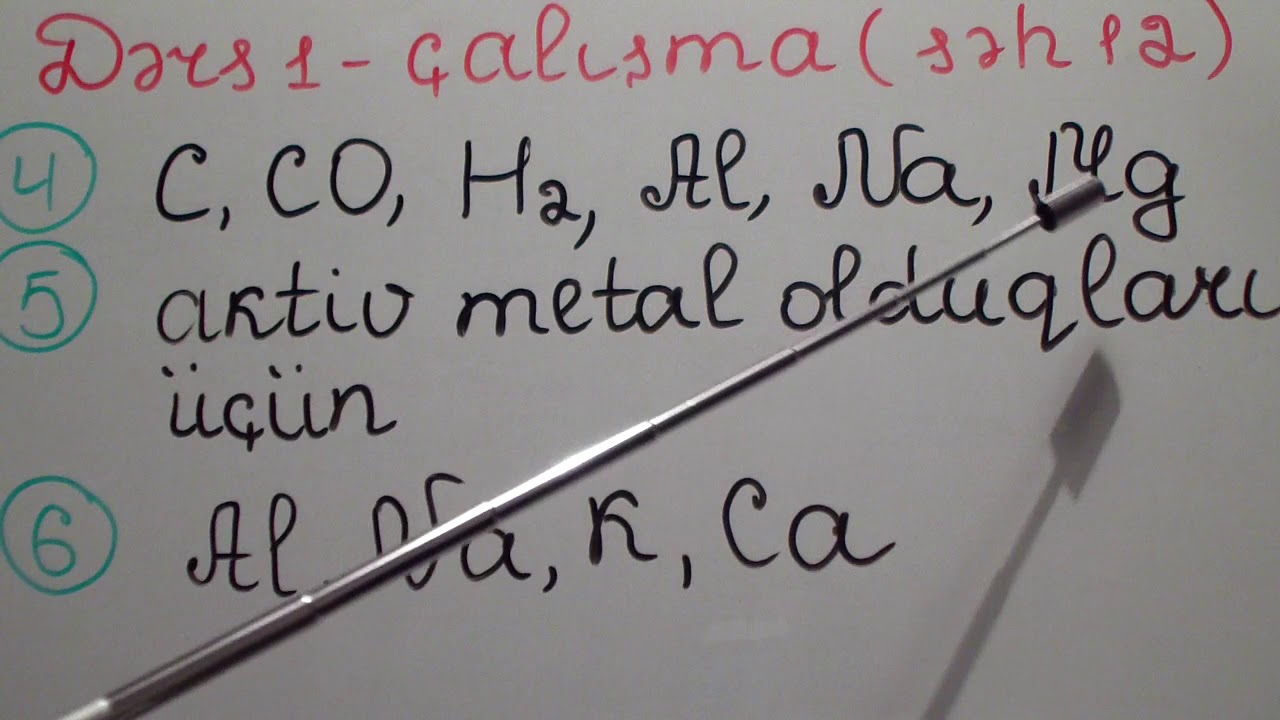 Dərs 1 - çalışma (səh 12)
4 C, CO, H2, Al, Na, Mg
5 aktiv metal olduqları
üçün
6 Al, Na, K, Ca